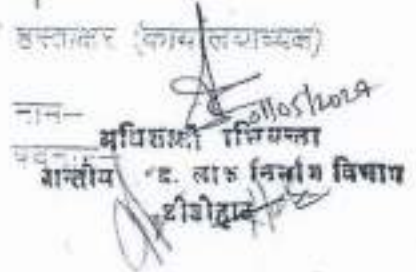 हस्ताक्षर (कार्यालयाध्यक्ष)
01/05/2024
नाम—
अधिशासी अभियन्ता
पदनाम
प्रान्तीय ख. लोक निर्माण विभाग
डीडीहाट